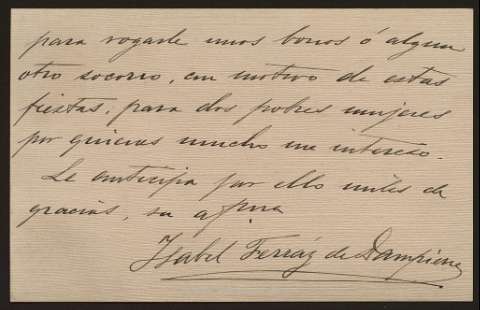 para rogarle unos bonos ó algun
otro socorro, con motivo de estas
fiestas, para dos pobres mujeres
por quienes mucho me intereso.
Le anticipa por ello miles de
gracias, su afma
Isabel Ferráz de Dampierre